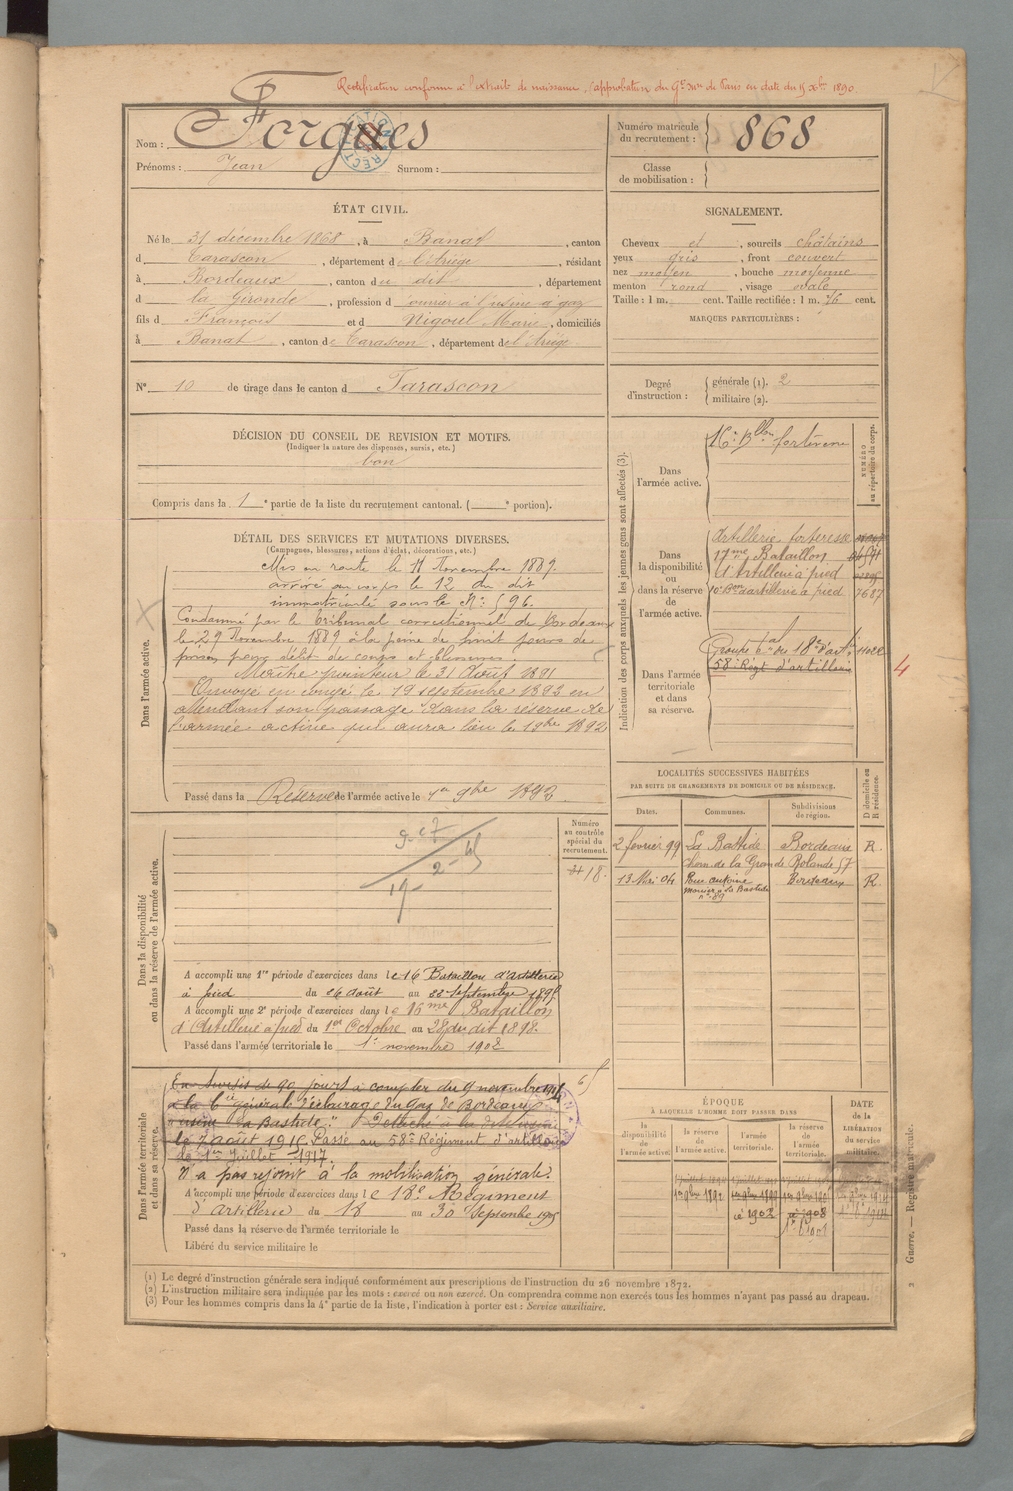 Rectification conforme à l'extrait de naissance, (approbation du Gal Mre de Paris en date du 15 Xbre 1890.
Nom : Forgues
Prénoms : Jean Surnom :
Numéro matricule du recrutement : 868
Classe de mobilisation :
ÉTAT CIVIL.
Né le 31 décembre 1868, à Banat, canton
d Tarascon, département de l'Ariège, résidant
à Bordeaux, canton du dit, département
d la Gironde, profession d ouvrier à l'usine à gaz
fils d François et d Nigoul Marie, domiciliés
à Banat, canton de Tarascon, département de l'Ariège
SIGNALEMENT.
Cheveux et, sourcils châtains
yeux gris, front couvert
nez moyen, bouche moyenne
menton rond, visage ovale
Taille : 1 m. cent. Taille rectifiée : 1 m. 76 cent.
MARQUES PARTICULIÈRES :
N° 10 de tirage dans le canton d Tarascon
Degré d'instruction : générale (1). 2
militaire (2).
DÉCISION DU CONSEIL DE REVISION ET MOTIFS.
(Indiquer la nature des dispenses, sursis, etc.)
bon
Compris dans la 1e partie de la liste du recrutement cantonal. ( e portion).
DÉTAIL DES SERVICES ET MUTATIONS DIVERSES.
(Campagnes, blessures, actions d'éclat, décorations, etc.)
Dans l'armée active.
Mis en route le 11 Novembre 1889.
arrivé au corps le 12 du dit
immatriculé sous le N° 596.
Condamné par le tribunal correctionnel de Bordeaux
le 29 Novembre 1889 à la peine de huit jours de
prison pour délit de coups et blessures
Maître pointeur le 31 Août 1891
Envoyé en congé le 19 septembre 1892 en
attendant son passage dans la réserve de
l'armée active qui aura lieu le 1 9bre 1892
Passé dans la Réserve de l'armée active le 1er 9bre 1892
Indication des corps auxquels les jeunes gens sont affectés (3).
NUMÉRO au répertoire du corps.
Dans l'armée active.
16e Bllon forteresse
Dans la disponibilité ou dans la réserve de l'armée active.
Artillerie forteresse
17me Bataillon
d'Artillerie à pied
10e Bon d'artillerie à pied 7687
Dans l'armée territoriale et dans sa réserve.
Groupe tal du 18e d'art
58e Régt d'artillerie
4
LOCALITÉS SUCCESSIVES HABITÉES
PAR SUITE DE CHANGEMENTS DE DOMICILE OU DE RÉSIDENCE.
Dates. Communes. Subdivisions de région. D domicile ou R résidence.
2 février 99 La Bastide Bordeaux R.
chem. de la Grande Rolande 57
13 Mai 04 Rue Antoine Bordeaux R.
Monier à La Bastide
n° 89
Dans la disponibilité ou dans la réserve de l'armée active.
Numéro au contrôle spécial du recrutement.
18
A accompli une 1re période d'exercices dans le 16 Bataillon d'Artillerie
à pied du 26 août au 22 septembre 1895
A accompli une 2e période d'exercices dans le 16me Bataillon
d'Artillerie à pied du 1er Octobre au 28 du dit 1898.
Passé dans l'armée territoriale le 1er novembre 1902
Dans l'armée territoriale et dans sa réserve.
En sursis de 90 jours à compter du 9 novembre 1914
à la Cie générale d'éclairage du Gaz de Bordeaux
usine La Bastide." Détaché à la dite usine
le 7 août 1915. Passé au 58e Régiment d'artillerie
le 1er Juillet 1917.
N'a pas rejoint à la mobilisation générale.
A accompli une période d'exercices dans le 18e Régiment
d'Artillerie du 18 au 30 Septembre 1905
Passé dans la réserve de l'armée territoriale le
Libéré du service militaire le
ÉPOQUE
À LAQUELLE L'HOMME DOIT PASSER DANS
la disponibilité de l'armée active.
la réserve de l'armée active.
l'armée territoriale.
la réserve de l'armée territoriale.
DATE de la LIBÉRATION du service militaire.
1er 9bre 1892
1902
1908
(1) Le degré d'instruction générale sera indiqué conformément aux prescriptions de l'instruction du 26 novembre 1872.
(2) L'instruction militaire sera indiquée par les mots : exercé ou non exercé. On comprendra comme non exercés tous les hommes n'ayant pas passé au drapeau.
(3) Pour les hommes compris dans la 4e partie de la liste, l'indication à porter est : Service auxiliaire.
2 Guerre. — Registre matricule.